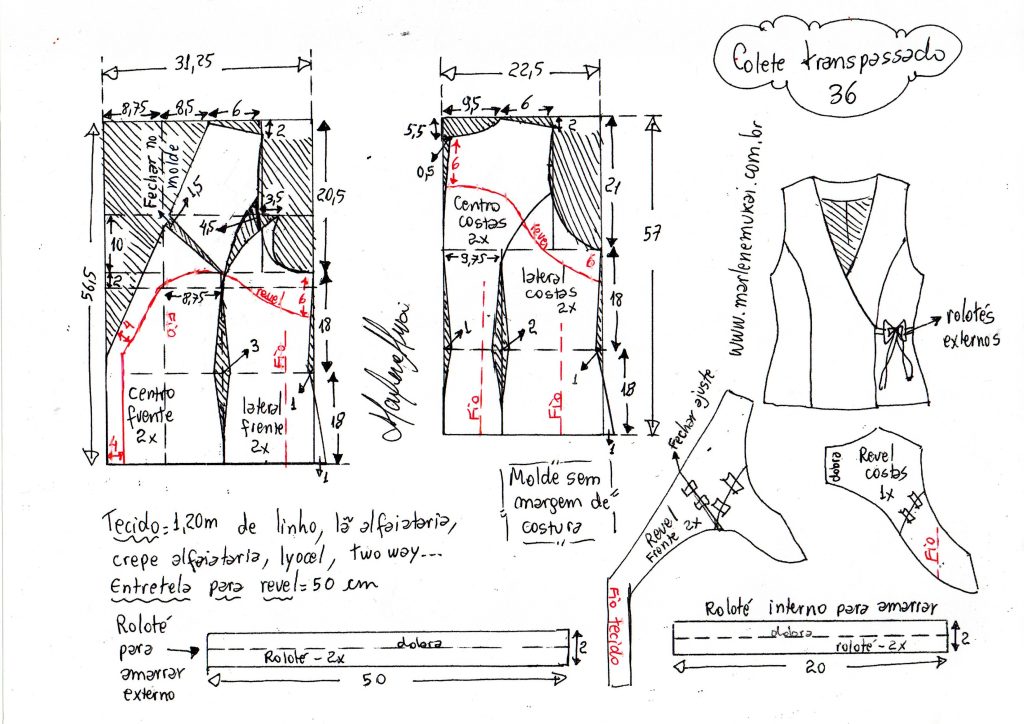 Colete transpassado
36
www.marlenemukai.com.br
31,25
8,75
8,5
6
2
Fechar no
molde
1,5
3,5
4,5
20,5
10
2
56,5
8,75
revel
6
18
4
Fio
Fio
3
1
centro
frente
2x
lateral
frente
2x
18
4
1
22,5
9,5
6
5,5
2
0,5
6
21
57
centro
costas
2x
revel
9,75
6
lateral
costas
2x
18
1
2
1
Fio
Fio
18
1
Marlene Mukai
rolotés
externos
Molde sem
margem de
costura
Fechar ajuste
Revel
Frente 2x
Fio tecido
dobra
Revel
costas
1x
Fio
Tecido=1,20m de linho, lã alfaiataria,
crepe alfaiataria, lyocel, two way...
Entretela para revel=50 cm
Roloté
para
amarrar
externo
dobra
Roloté - 2x
2
50
Roloté interno para amarrar
dobra
roloté - 2x
2
20